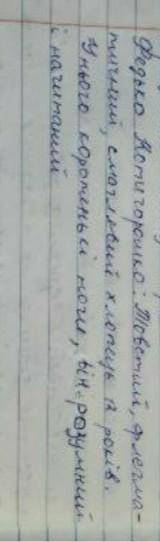 Федько Котигорошко: Товстий, флегма-
тичний, смаглявий хлопець 12 років.
У нього коротенькі ноги, він розумний
і начитаний